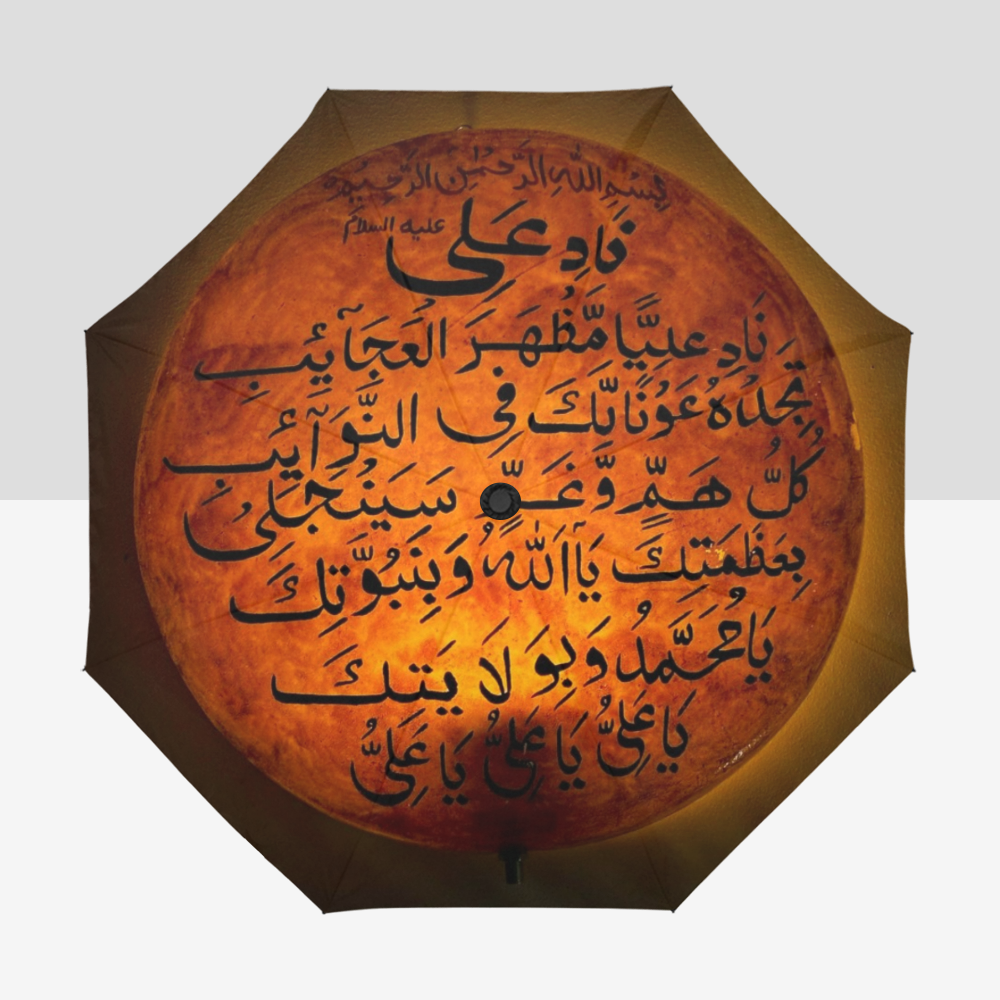 بِسْمِ اللهِ الرَّحْمٰنِ الرَّحِيْمِ
نَادِ عَلِی عليه السلام
نَادِ عَلِيًّا مَّظْهَرَ الْعَجَآئِبِ
تَجِدْهُ عَوْنًا لَّكَ فِی النَّوَآئِبِ
كُلُّ هَمٍّ وَّغَمٍّ سَيَنْجَلِیْ
بِعَظْمَتِكَ يَآ اَللّٰهُ وَبِنُبُوَّتِكَ
يَا مُحَمَّدُ وَبِوَلَايَتِكَ
يَا عَلِیُّ يَا عَلِیُّ يَا عَلِیُّ